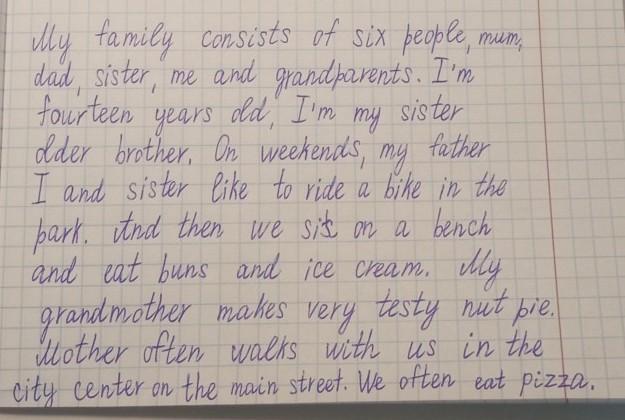 My family consists of six people, mum,
dad, sister, me and grandparents. I'm
fourteen years old, I'm my sister
older brother. On weekends, my father
I and sister like to ride a bike in the
park. And then we sit on a bench
and eat buns and ice cream. My
grandmother makes very testy nut pie.
Mother often walks with us in the
city center on the main street. We often eat pizza.